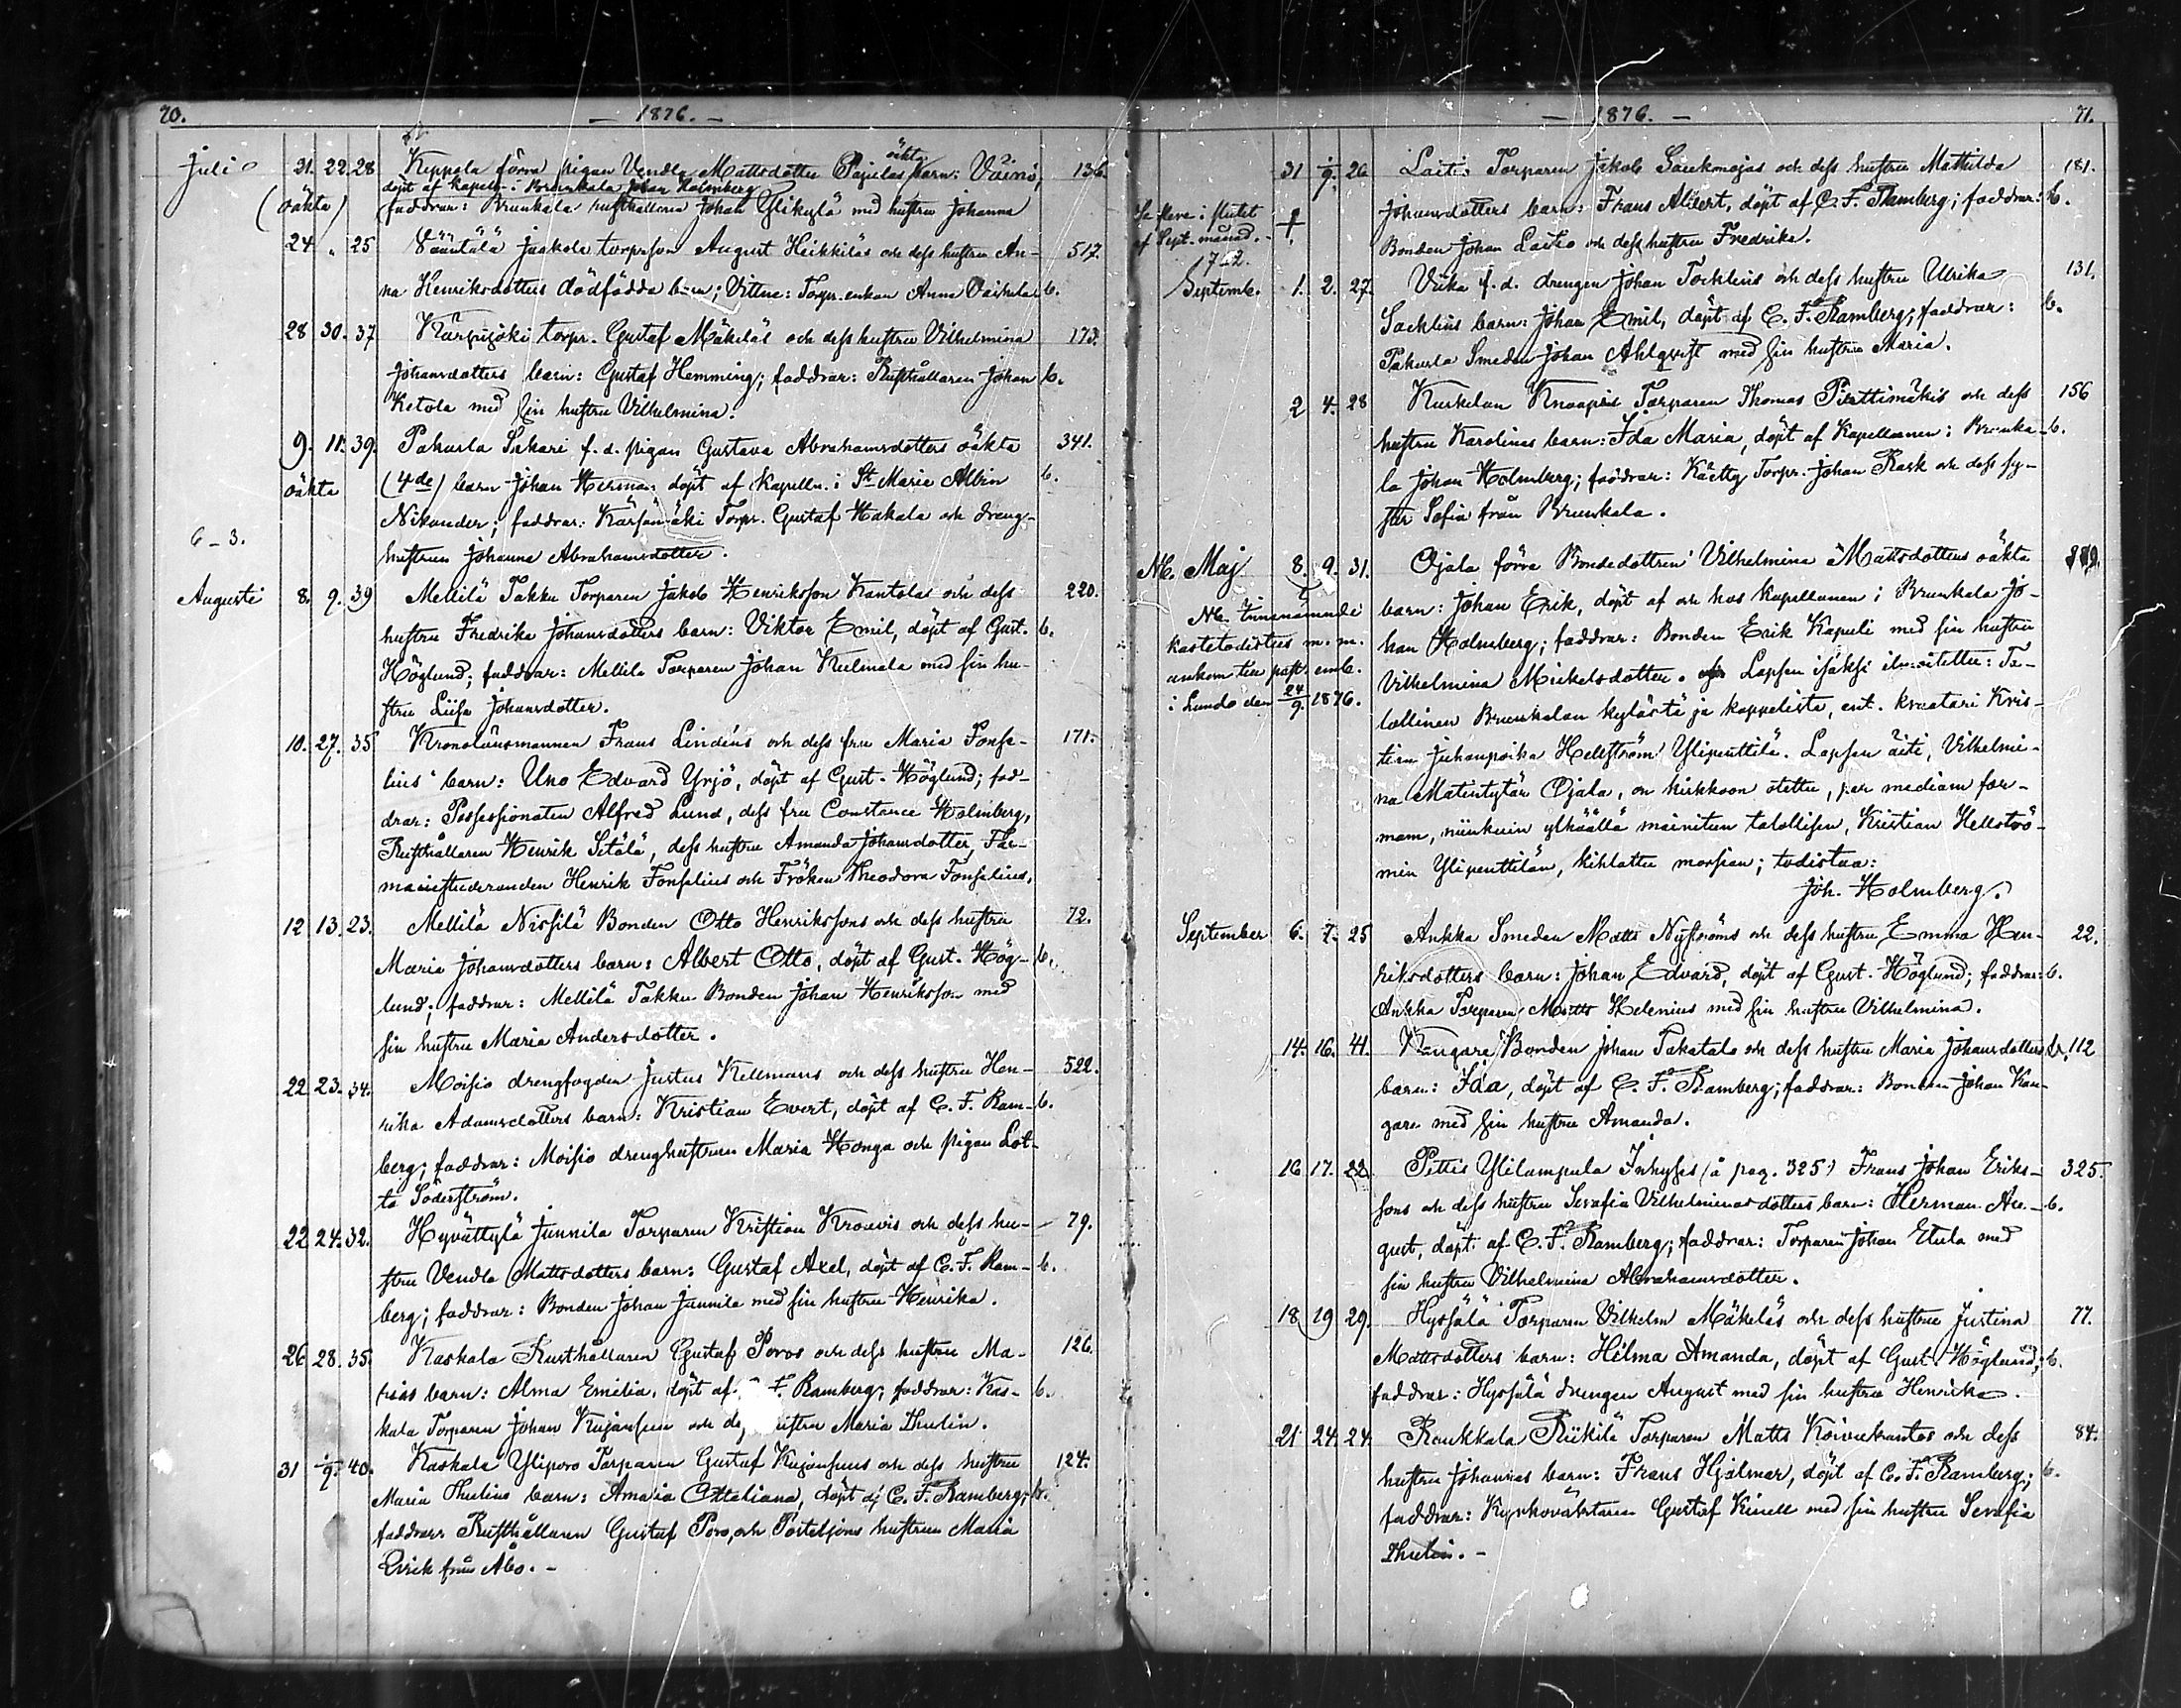 70. — 1876. —
Juli 21. 22. 28 Keppola förra pigan Vendla Mattsdotter Pajulas oäkta barn: Väinö, 136.
döpt af kapell. i Brunkala Johan Holmberg
(oäkta) faddrar: Brunkala rusthållaren Johan Ylikylä med hustru Johanna
24 " 25 Vääntälä Jaakola torpeson August Heikkiläs och dess hustru An- 517.
na Henriksdotters dödfödda barn; Vittne: Torpr. enkan Anna b.
28 30. 37 torpr. Gustaf Mäkeläs och dess hustru Vilhelmina 173.
Johansdotters barn: Gustaf Hemming; faddrar: Rusthållaren Johan b.
Ketola med sin hustru Vilhelmina.
9. 11. 39. Pahurla Sakari f. d. pigan Gustava Abrahamsdotters oäkta 341.
oäkta (4de) barn Johan Herman döpt af Kapelln. i St Marie Albin b.
Nikander; faddrar: Torpr. Gustaf Hakala och dreng-
6-3.
hustrun Johanna Abrahamsdotter.
Augusti 8. 9. 39 Mellilä Takku Torparen Jakob Henriksson Kantolas och dess 220.
hustru Fredrika Johansdotters barn: Viktor Emil, döpt af Gust. b.
Höglund; faddrar: Mellilä Torparen Johan Kulmala med sin hu-
stru Liisa Johansdotter.
10. 27. 35 Kronolänsmannen Frans Lindéns och dess fru Maria Fonse- 171.
lius barn: Uno Edvard Yrjö, döpt af Gust. Höglund; fad-
drar: Possessionaten Alfred Lund, dess fru Constance Holmberg,
Rusthållaren Henrik Setälä, dess hustru Amanda Johansdotter, Far-
maciestuderanden Henrik Fonselius och Fröken Theodora Fonselius.
12 13. 23. Mellilä Nissilä Bonden Otto Henrikssons och dess hustru 72.
Maria Johansdotters barn: Albert Otto, döpt af Gust. Hög- b.
lund; faddrar: Mellilä Takku Bonden Johan Henriksson med
sin hustru Maria Andersdotter.
22 23. 34. Moisio drengfogden Justus Kellmans och dess hustru Hen- 522.
rika Adamsdotters barn: Kristian Evert, döpt af C. F. Ram- b.
berg; faddrar: Moisio drenghustrun Maria Honga och pigan Lot-
ta Söderström.
22 24. 32. Hyvättylä Junnila Torparen Kristian Krouvis och dess hu- 79.
stru Vendla Mattsdotters barn: Gustaf Axel, döpt af C. F. Ram- b.
berg; faddrar: Bonden Johan Junnila med sin hustru Henrika.
26 28. 35. Kaskala Rusthållaren Gustaf Poros och dess hustru Ma- 126.
rias barn: Alma Emilia, döpt af F. Ramberg; faddrar: Kas- b.
kala Torparen Johan och hustru Maria Thulin.
31 1/9. 40. Kaskala Yliporo Torparen Gustaf och dess hustru 124.
Maria Thulins barn: Amalia döpt af C. F. Ramberg; b.
faddrar: Rusthållaren Gustaf Poro, och hustrun Maria
från Åbo. —
— 1876. — 71.
31 1/9. 26 Laitis Torparen Jakob och dess hustru Mathilda 181.
Johansdotters barn: Frans Albert, döpt af C. F. Ramberg; faddrar: b.
Se i slutet af Sept. månad. +
Bonden Johan Laitio och dess hustru Fredrika.
7-2.
Septemb. 1. 2. 27. f. d. drengen Johan och dess hustru Ulrika 131.
barn: Johan Emil, döpt af C. F. Ramberg; faddrar: b.
Pakurla Smeden Johan Ahlqvist med sin hustru Maria.
2 4. 28 Kurkelan Knaapis Torparen Thomas Pirttimäkis och dess 156
hustru Karolinas barn: Ida Maria, döpt af Kapellanen i Brunka- b.
la Johan Holmberg; faddrar: Torpr. Johan Rask och dess sy-
ster Sofia från Brunkala.
NB. Maj 8. 9. 31. Ojala förra Bondedottren Vilhelmina Mattsdotters oäkta
barn: Johan Erik, döpt af och hos kapellanen i Brunkala Jo-
han Holmberg; faddrar: Bonden Erik Kapuli med sin hustru
Vilhelmina Mickelsdotter. Lapsen isäksi ilmoitettu: Ta-
NB.
kastetodistus m. m.
ankom till past. emb.
i Lundo den 24/9 1876.
lollinen Brunkalan kylästä ja kappelista, ent. kraatari Kris-
tian Juhanpoika Hellström Ylipenttilä. Lapsen äiti, Vilhelmi-
na Matintytär Ojala, on kirkkoon otettu, per mediam for-
mam, niinkuin ylhäällä mainitun talollisen, Kristian Hellströ-
min Ylipenttilän, kihlattu morsian; todistaa:
Joh. Holmberg.
September 6. 7. 25 Ankka Smeden Matts Nyströms och dess hustru Emma Hen- 22.
riksdotters barn: Johan Edvard, döpt af Gust. Höglund; faddrar: b.
Ankka Torparen Matts Helenius med sin hustru Vilhelmina.
14. 16. 41. Kangare Bonden Johan Takatalo och dess hustru Maria Johansdotters b. 112
barn: Ida, döpt af C. F. Ramberg; faddrar: Bonden Johan Kan-
gare med sin hustru Amanda.
16 17. 22. Pittis Ylilampula Inhyses (å pag. 325) Frans Johan Eriks- 325.
sons och dess hustru Serafia Vilhelminasdotters barn: Herman Au- b.
gust, döpt af C. F. Ramberg; faddrar: Torparen Johan Etula med
sin hustru Vilhelmina Abrahamsdotter.
18 19 29. Hyssälä Torparen Vilhelm Mäkeläs och dess hustru Justina 77.
Mattsdotters barn: Hilma Amanda, döpt af Gust. Höglund; b.
faddrar: Hyssälä drengen August med sin hustru Henrika.
21 24. 24. Raukkala Riikilä Torparen Matts Koivukantos och dess 84.
hustru Johannas barn: Frans Hjalmar, döpt af C. F. Ramberg; b.
faddrar: Kyrkovaktaren Gustaf Kinell med sin hustru Serafia
Thulin. —